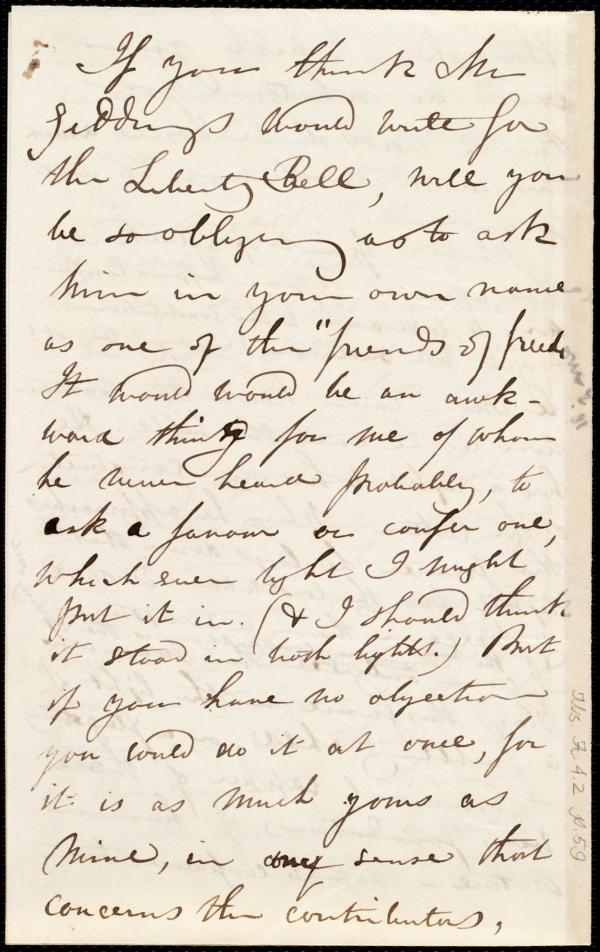 If you think Mr
Giddings would write for
the Liberty Bell, will you
be so obliging as to ask
him in your own name
as one of the "friends of freed
It would would be an awk-
ward thing for me of whom
he never heard probably, to
ask a favour or confer one,
which ever light I might
put it in. (& I should think
it stood in both lights.) But
if you have no objection
you could do it at once, for
it is as much yours as
mine, in any sense that
concerns the contributors,
Ms. A.4.2 p.59